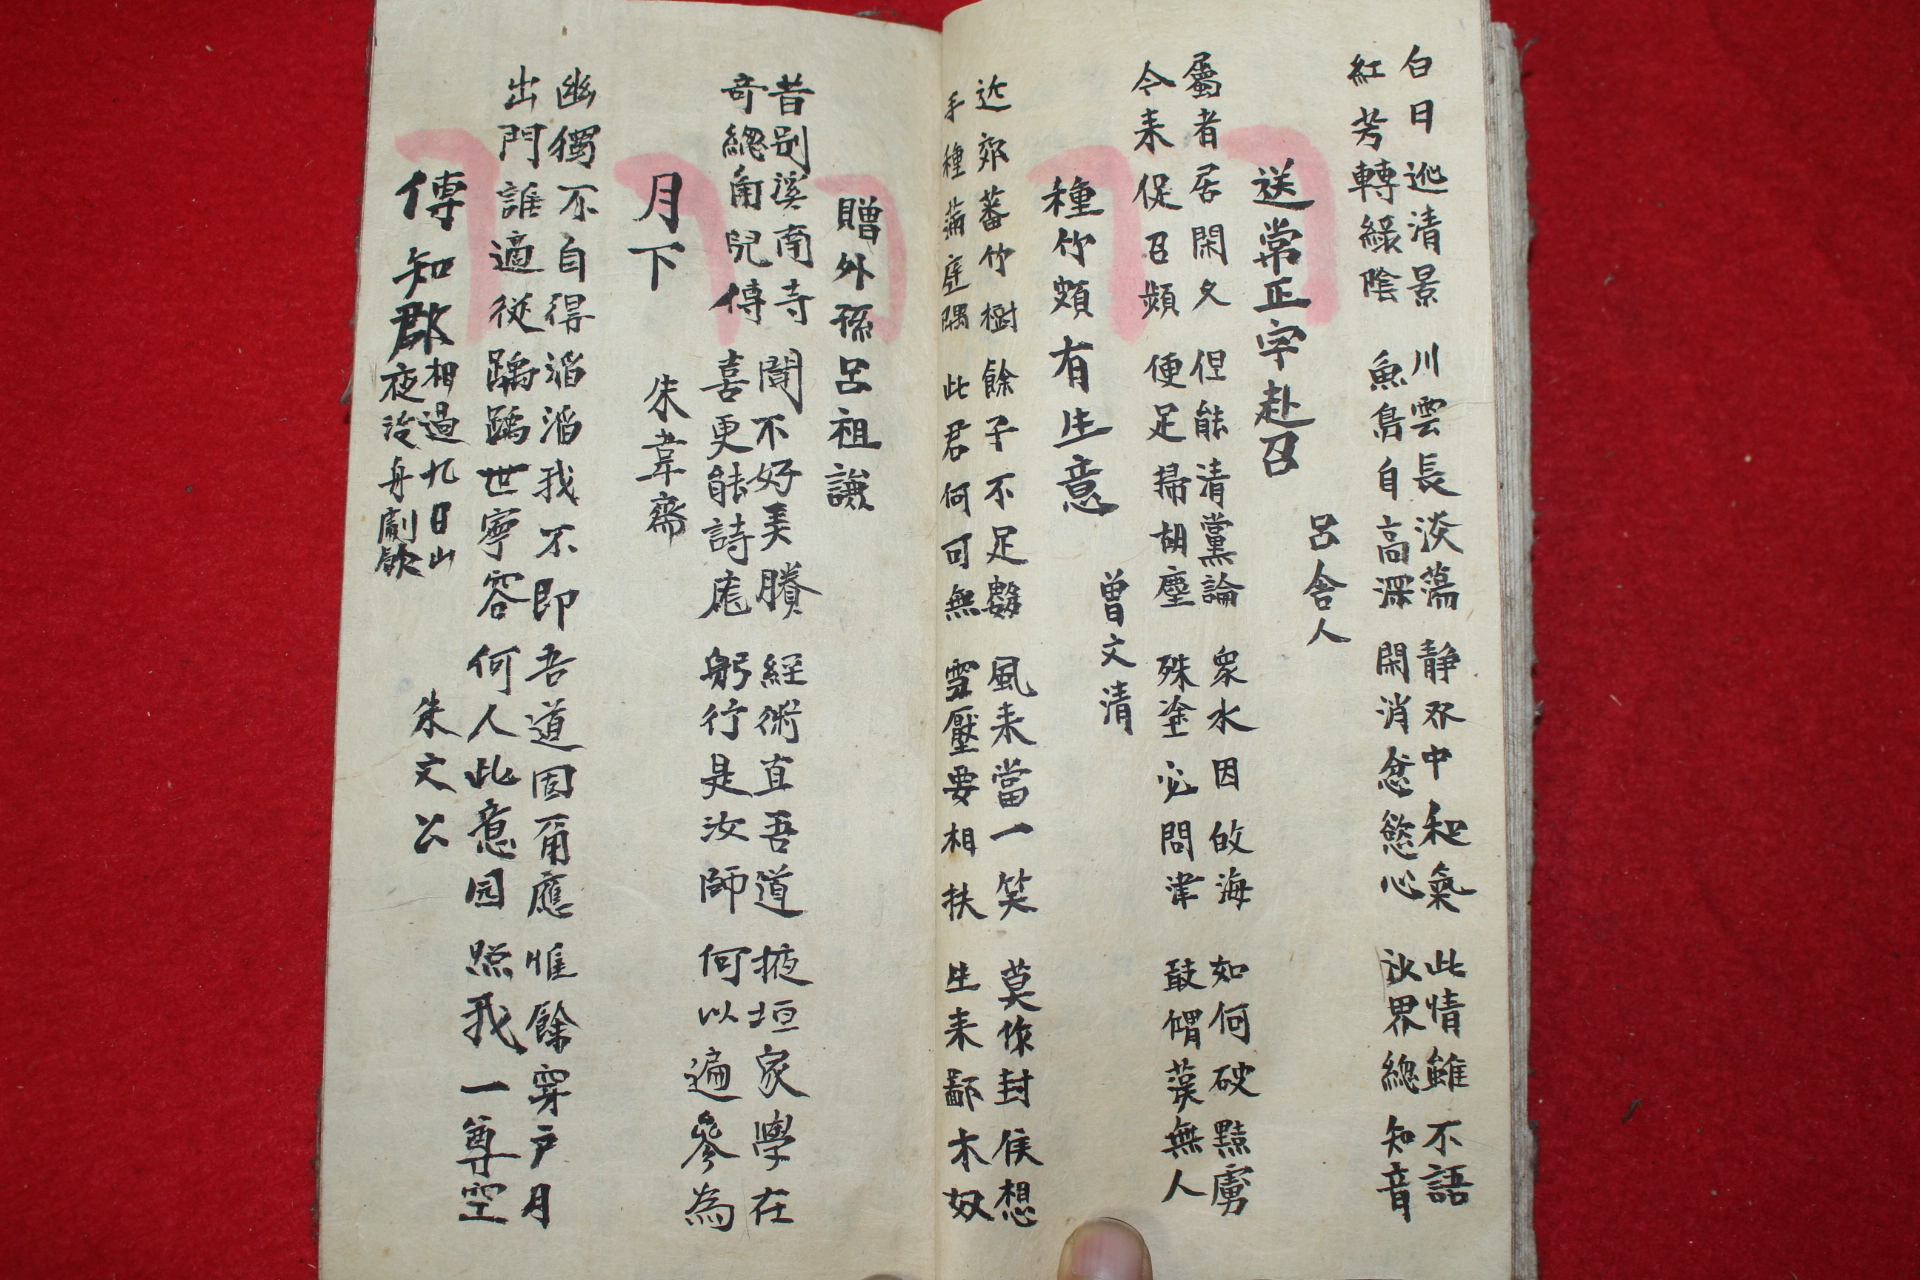 白日巡清景 川雲長淡蕩 靜双中和氣 此情雖不語
紅芳轉綠陰 魚鳥自高深 閑消忿慾心 沙界總知音
送常正字赴召 呂舍人
屬者居閑久 但能清黨論 衆水因攸海 如何破黠虜
令来促召頻 便足掃胡塵 殊塗必問津 敢謂漢無人
種竹頗有生意 曾文清
近郊蕃竹樹 餘子不足數 風来當一笑 莫作封侯想
手種滿庭隅 此君何可無 雪壓要相扶 生来鄙木奴
贈外孫呂祖謙
昔别溪南寺 聞不好美賸 經術直吾道 掖垣家學在
奇總角兒傳 喜更能詩庭 躬行是汝師 何以遍參為
月下 朱韋齋
幽獨不自得滔滔我不即 吾道固甭應 惟餘穿戶月
出門誰適從踽踽世寧容 何人此意同 照我一尊空
傅知郡 相過九日山
夜泛舟劇飲 朱文公